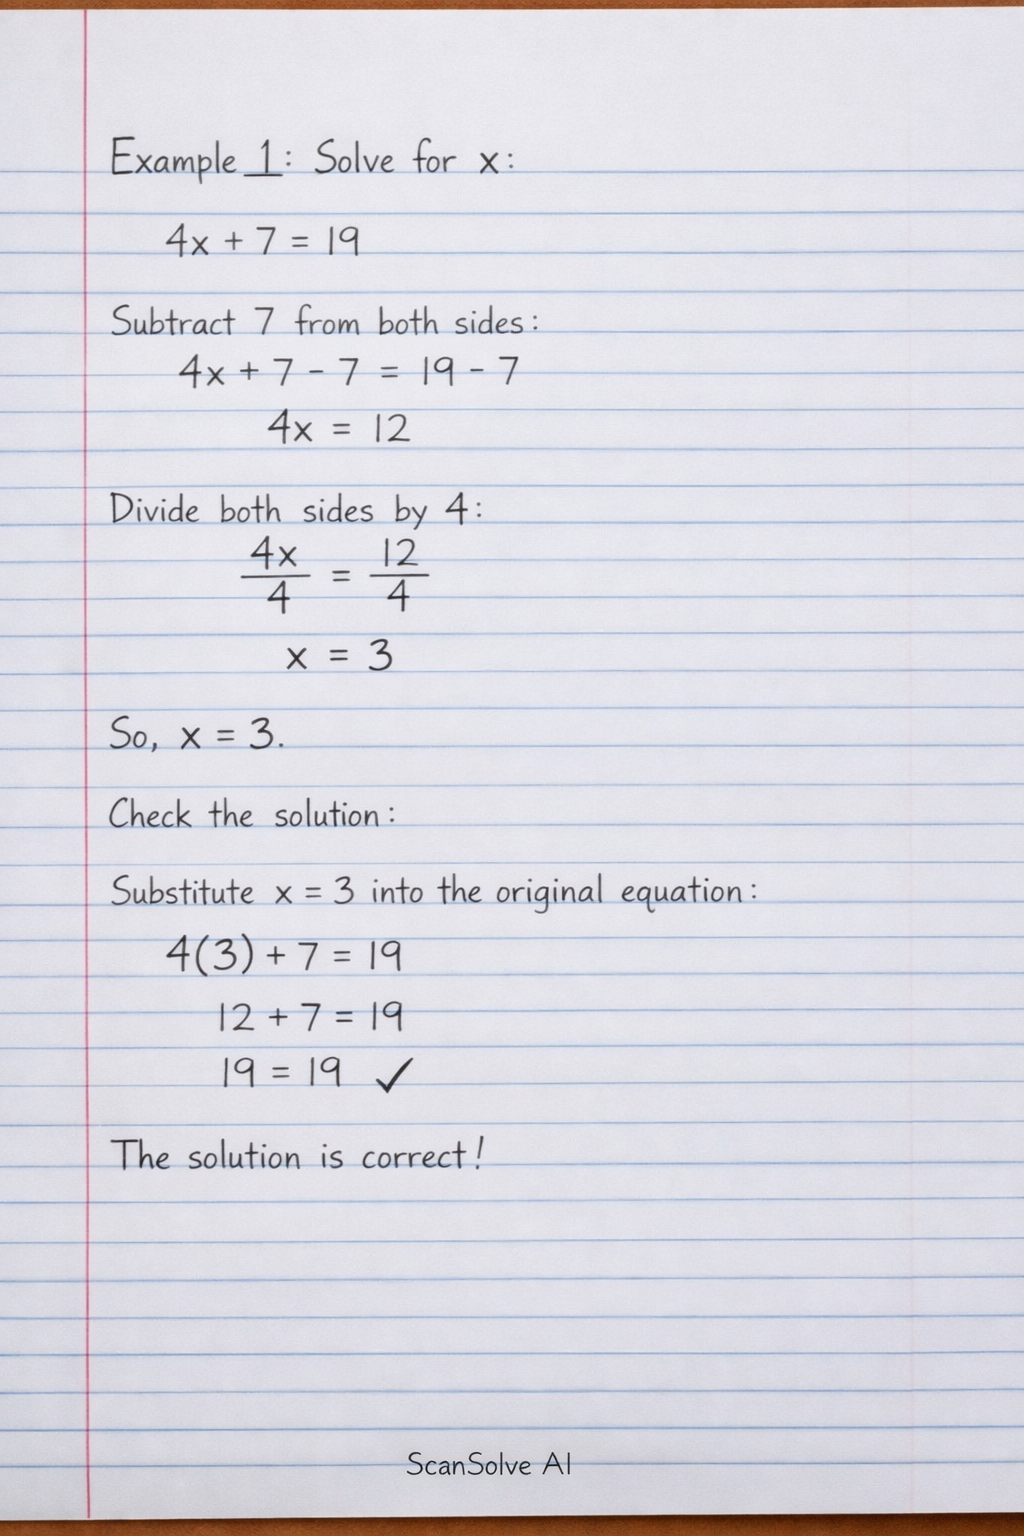 Example 1: Solve for x:
4x + 7 = 19
Subtract 7 from both sides:
4x + 7 - 7 = 19 - 7
4x = 12
Divide both sides by 4:
4x/4 = 12/4
x = 3
So, x = 3.
Check the solution:
Substitute x = 3 into the original equation:
4(3) + 7 = 19
12 + 7 = 19
19 = 19 ✓
The solution is correct!
ScanSolve AI